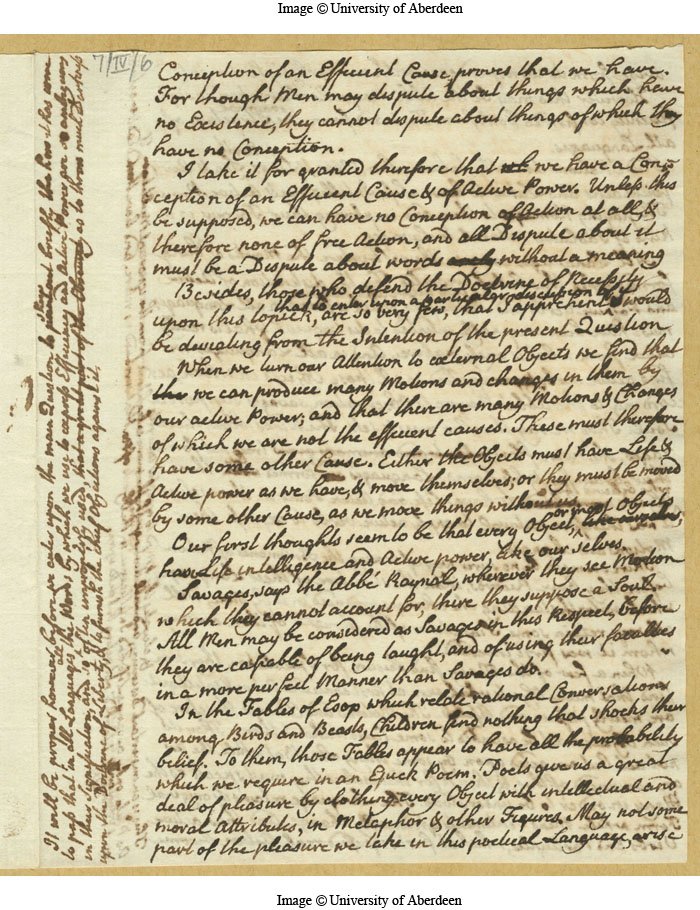 Image © University of Aberdeen
7/IV/6
Conception of an Efficient Cause, proves that we have.
For though Men may dispute about things which have
no Existence, they cannot dispute about things of which they
have no Conception.
I take it for granted therefore that we have a Con-
ception of an Efficient Cause & of Active Power. Unless this
be supposed, we can have no Conception of Action at all, &
therefore none of free Action, and all Dispute about it
must be a Dispute about words only without a meaning
Besides, those who defend the Doctrine of Necessity
that to enter upon a particular discussion of it
upon this topick, are so very few, that I apprehend would
be deviating from the Intention of the present Question
When we turn our Attention to external Objects we find that
we can produce many Motions and changes in them by
our active Power; and that there are many Motions & Changes
of which we are not the efficient causes. These must therefore
have some other Cause. Either the Objects must have Life &
Active power as we have, & move themselves; or they must be moved
by some other Cause, as we move things without us.
or most Objects
Our first thoughts seem to be that every Object, like ourselves,
have Life intelligence and Active power, like our selves.
Savages, says the Abbé Raynal, wherever they see Motion
which they cannot account for, there they suppose a Soul.
All Men may be considered as Savages in this Respect, before
they are capable of being taught, and of using their faculties
in a more perfect Manner than Savages do.
In the Fables of Esop which relate rational Conversations
among Birds and Beasts, Children find nothing that shocks their
belief. To them, those Fables appear to have all the probability
which we require in an Epick Poem. Poets give us a great
deal of pleasure by clothing every Object with intellectual and
moral Attributes, in Metaphor & other Figures. May not some
part of the pleasure we take in this poetical Language, arise
It will be proper however before we enter upon the main Question to point out briefly how it has come
to pass that in all Languages all the Words by which we use to express Efficiency and Active Power are so ambiguous
in their Signification, and so often improperly used, that a great part of the as to them must Disputes
upon the Doctrine of Liberty, & to furnish the chief Objections against it.
Image © University of Aberdeen